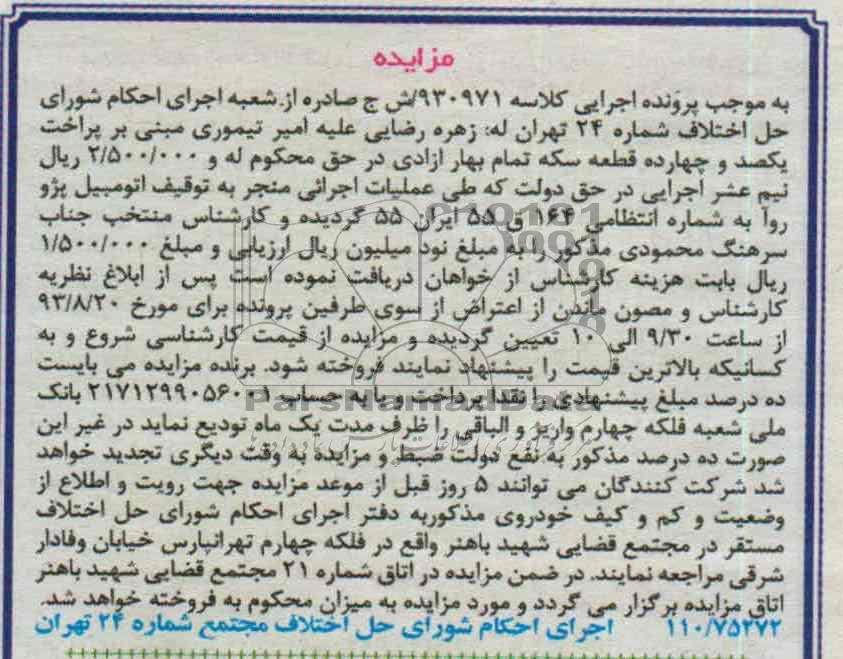 مزایده
به موجب پرونده اجرایی کلاسه ۹۳۰۹۷۱/ش ج صادره از شعبه اجرای احکام شورای
حل اختلاف شماره ۲۴ تهران له: زهره رضایی علیه امیر تیموری مبنی بر پراخت
یکصد و چهارده قطعه سکه تمام بهار ازادی در حق محکوم له و ۲/۵۰۰/۰۰۰ ریال
نیم عشر اجرایی در حق دولت که طی عملیات اجرائی منجر به توقیف اتومبیل پژو
روآ به شماره انتظامی ۱۶۴ ق ۵۵ ایران ۵۵ گردیده و کارشناس منتخب جناب
سرهنگ محمودی مذکور را به مبلغ نود میلیون ریال ارزیابی و مبلغ ۱/۵۰۰/۰۰۰
ریال بابت هزینه کارشناس از خواهان دریافت نموده است پس از ابلاغ نظریه
کارشناس و مصون ماندن از اعتراض از سوی طرفین پرونده برای مورخ ۹۳/۸/۲۰
از ساعت ۹/۳۰ الی ۱۰ تعیین گردیده و مزایده از قیمت کارشناسی شروع و به
کسانیکه بالاترین قیمت را پیشنهاد نمایند فروخته شود. برنده مزایده می بایست
ده درصد مبلغ پیشنهادی را نقدا پرداخت و یا به حساب ۲۱۷۱۲۹۹۰۵۶۰۰۱ بانک
ملی شعبه فلکه چهارم واریز و الباقی را ظرف مدت یک ماه تودیع نماید در غیر این
صورت ده درصد مذکور به نفع دولت ضبط و مزایده به وقت دیگری تجدید خواهد
شد شرکت کنندگان می توانند ۵ روز قبل از موعد مزایده جهت رویت و اطلاع از
وضعیت و کم و کیف خودروی مذکوربه دفتر اجرای احکام شورای حل اختلاف
مستقر در مجتمع قضایی شهید باهنر واقع در فلکه چهارم تهرانپارس خیابان وفادار
شرقی مراجعه نمایند. در ضمن مزایده در اتاق شماره ۲۱ مجتمع قضایی شهید باهنر
اتاق مزایده برگزار می گردد و مورد مزایده به میزان محکوم به فروخته خواهد شد.
۱۱۰/۷۵۲۷۲ اجرای احکام شورای حل اختلاف مجتمع شماره ۲۴ تهران
ParsNamadData